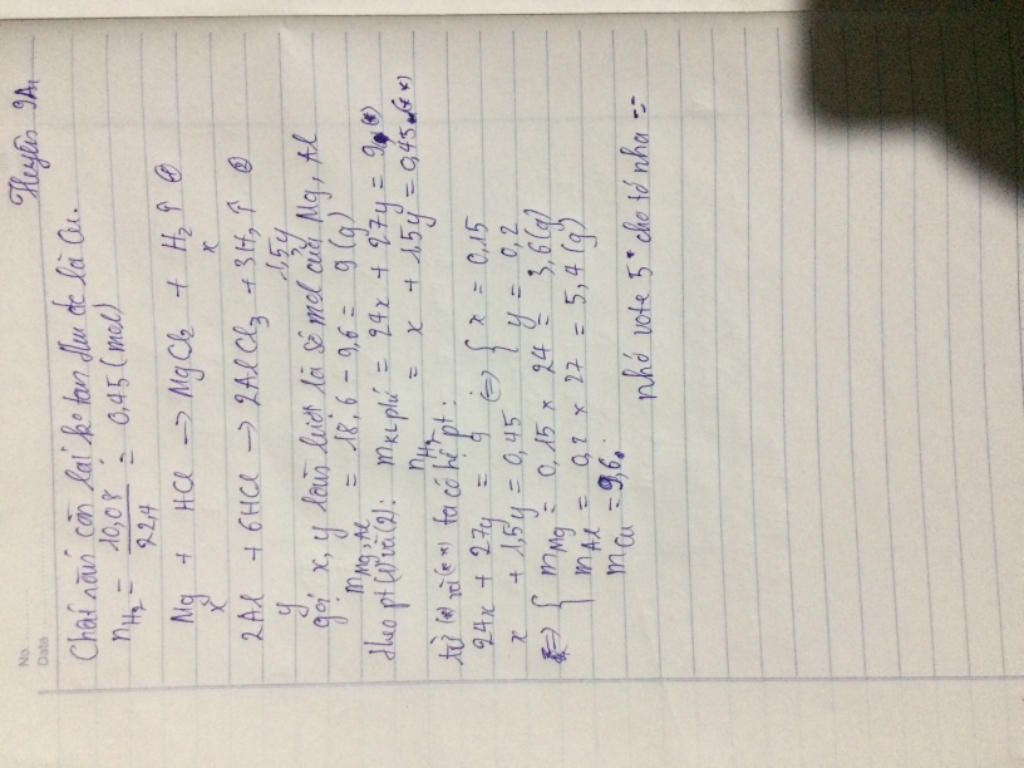 No.
Date
Huyền 9A1
Chất rắn còn lại ko tan thu đc là Cu.
nH2 = 10,08 / 22,4 = 0,45 (mol)
Mg + HCl → MgCl2 + H2↑ ①
x x
2Al + 6HCl → 2AlCl3 + 3H2↑ ②
y 1,5y
gọi x, y lần lượt là số mol của Mg, Al
mMg, Al = 18,6 - 9,6 = 9 (g)
theo pt (1) và (2): mKL phứ = 24x + 27y = 9 (*)
nH2 = x + 1,5y = 0,45 (**)
từ (*) và (**) ta có hệ pt:
24x + 27y = 9 (=) { x = 0,15
x + 1,5y = 0,45 { y = 0,2
=> { mMg = 0,15 x 24 = 3,6 (g)
mAl = 0,2 x 27 = 5,4 (g)
mCu = 9,6.
nhớ vote 5* cho tớ nha =